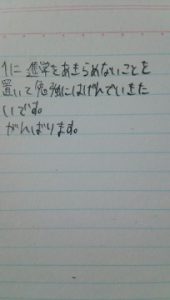 1に 進学をあきらめないことを
置いて勉強にはげんでいきた
いです。
がんばります。